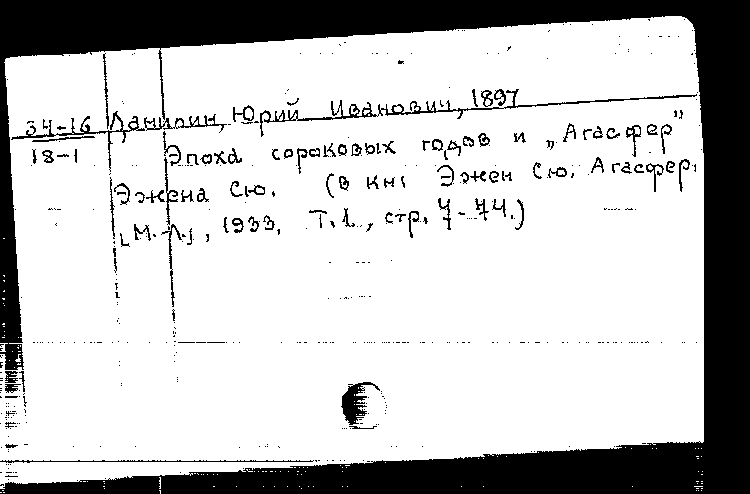 34-16 Данилин, Юрий Иванович, 1897
18-1 Эпоха сороковых годов и „Агасфер"
Эжена Сю. (в кн: Эжен Сю. Агасфер.
[М.-Л.], 1933, Т.1, стр. 7-74.)